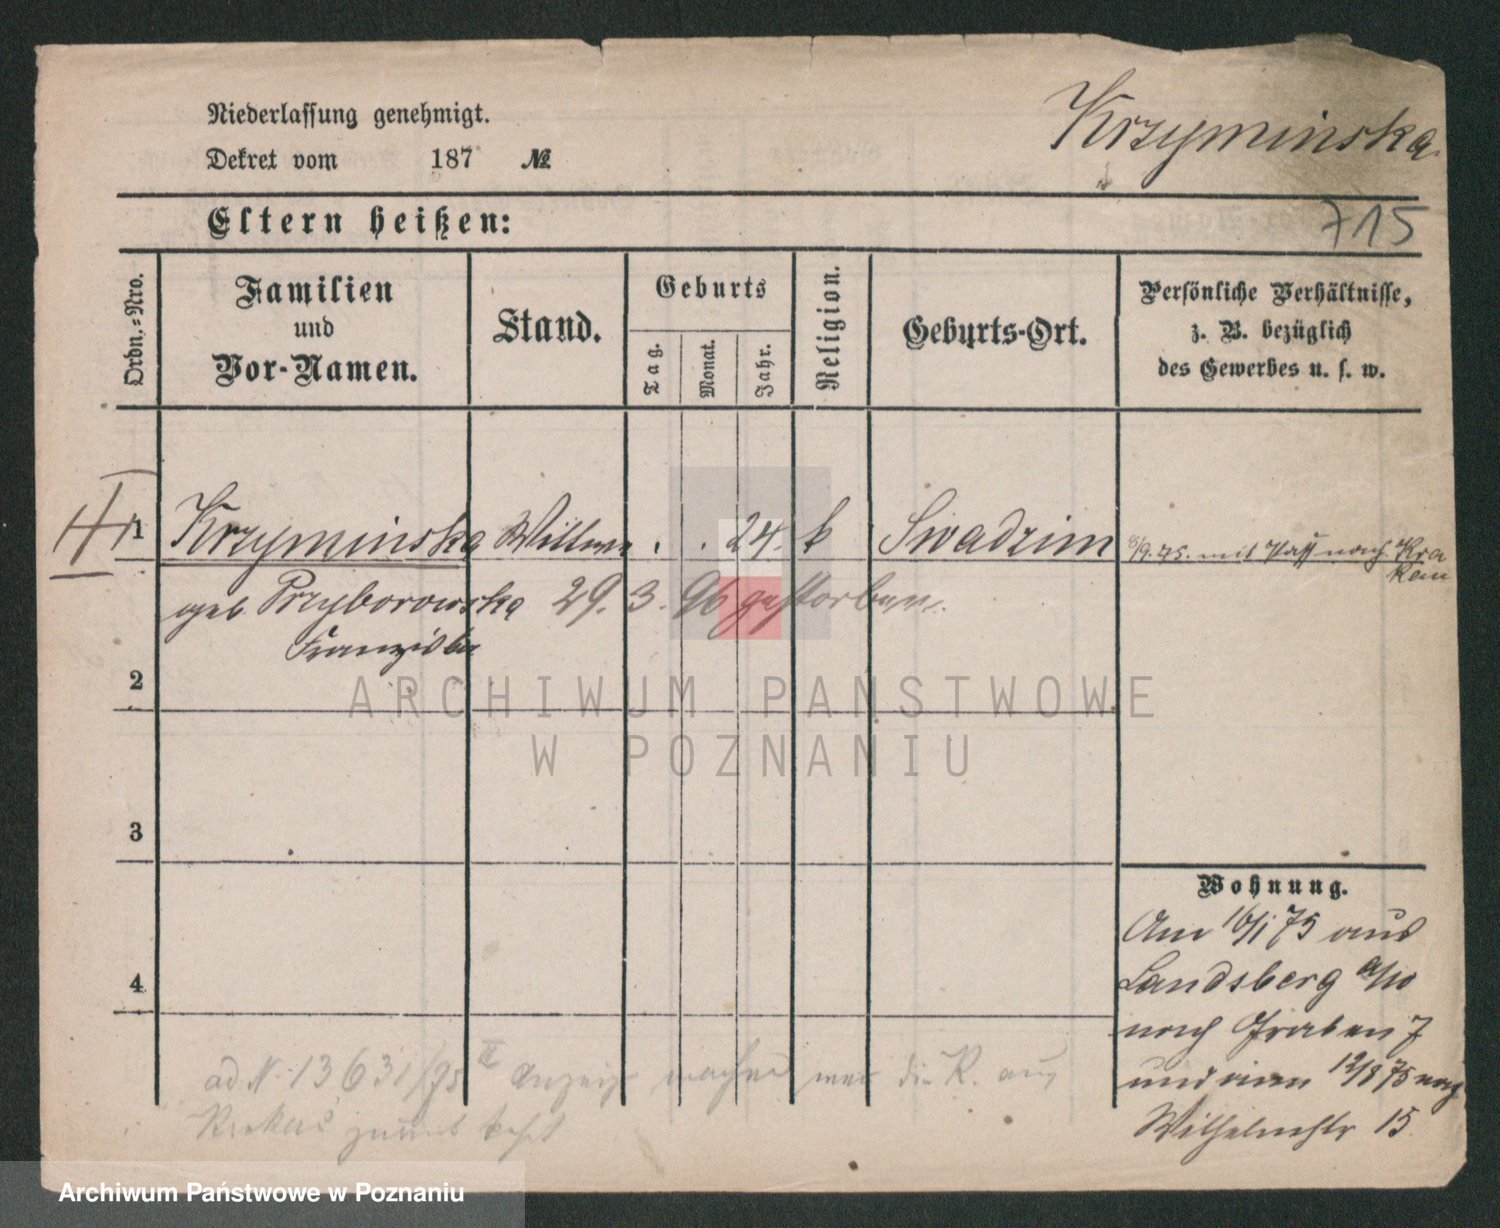 Niederlassung genehmigt.
Dekret vom 187 №
Krzyminska
Eltern heißen:
715
Ordn.-Nro.
Familien
und
Vor-Namen.
Stand.
Geburts
Tag.
Monat.
Jahr.
Religion.
Geburts-Ort.
Persönliche Verhältnisse,
z. B. bezüglich
des Gewerbes u. s. w.
1 Krzyminska Wittwe . . 24. k Swadzim 8/9.75. mit Pass nach Kra
kau
geb Przyborowska 29. 3. 96 gestorben.
Franziska
2
3
4
Wohnung.
Am 16/1 75 aus
Landsberg a/W
nach Graben 7
und von 12/8 75 nach
Wilhelmstr 15
ad N. 13631/75 II Anzeige machen wenn die K. aus
Krakau zurück kehrt
ARCHIWUM PAŃSTWOWE
W POZNANIU
Archiwum Państwowe w Poznaniu